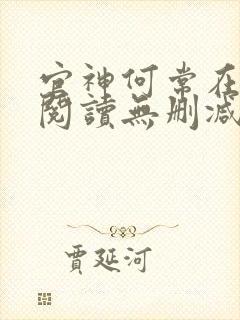 官神何常在
閱讀無刪減
賈延河